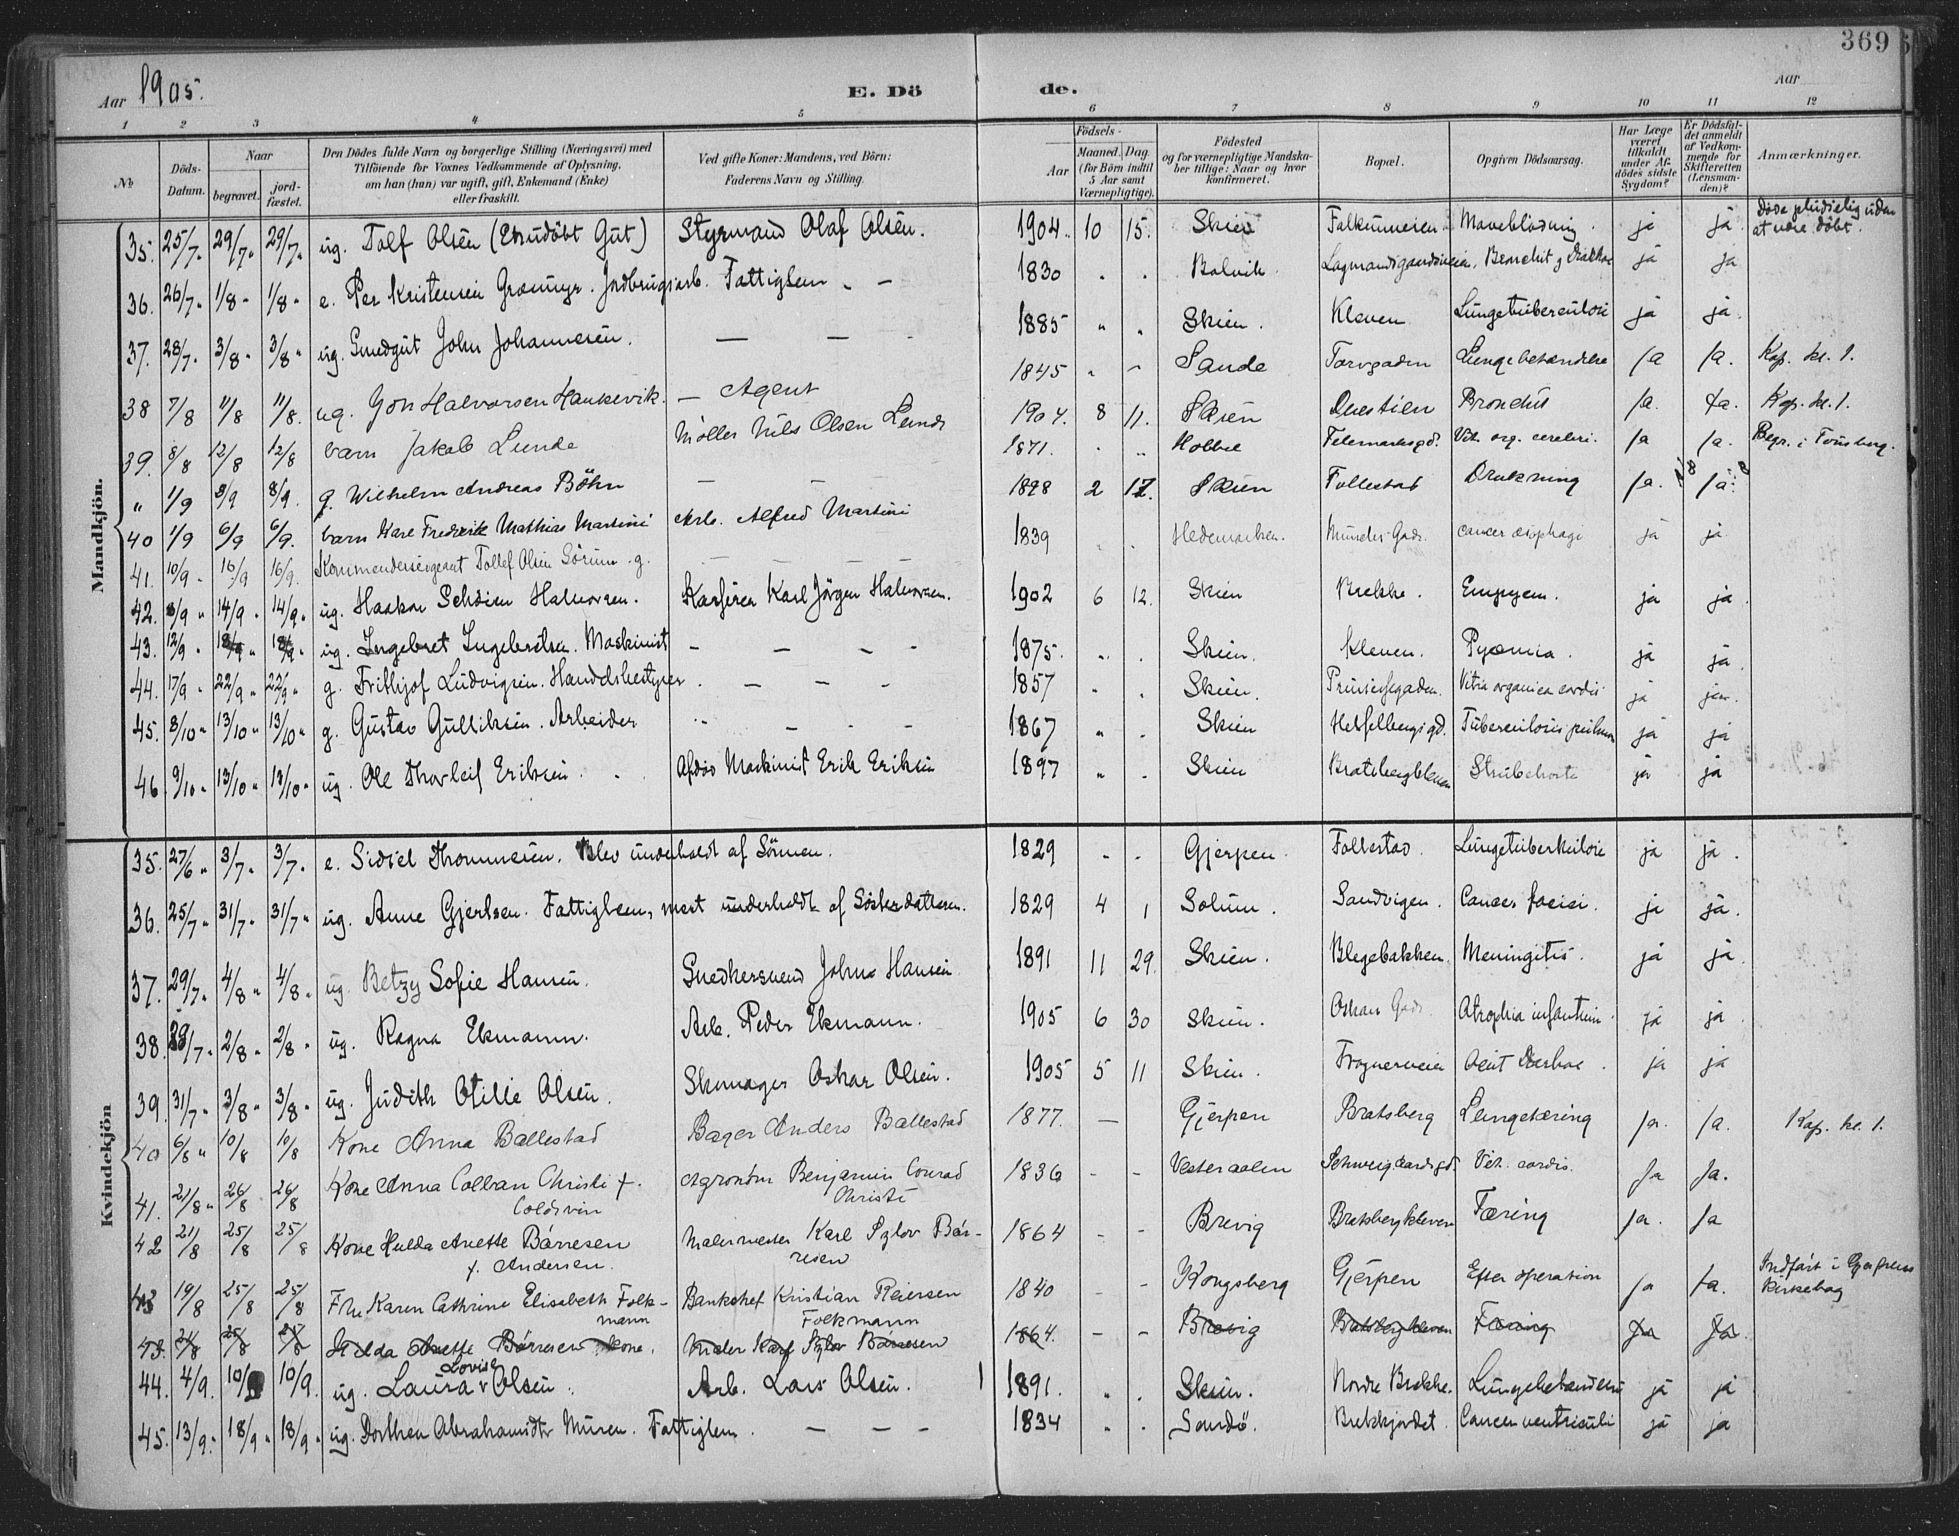 369
Aar 1905.
E. Döde.
Aar
1 2 3 4 5 6 7 8 9 10 11 12
No
Döds-Datum.
Naar
begravet.
jordfæstet.
Den Dödes fulde Navn og borgerlige Stilling (Næringsvei) med
Tilföiende for Voxnes Vedkommende af Oplysning,
om han (hun) var ugift, gift, Enkemand (Enke)
eller fraskilt.
Ved gifte Koner: Mandens, ved Börn:
Faderens Navn og Stilling.
Födsels-
Aar
Maaned. Dag
(for Börn indtil
5 Aar samt
Værnepligtige).
Födested
og for værnepligtige Mandskaber tillige: Naar og hvor
konfirmeret.
Bopæl.
Opgiven Dödsaarsag.
Har Læge
været
tilkaldt
under Afdödes sidste
Sygdom?
Er Dödsfaldet anmeldt
af Vedkommende for
Skifteretten
(Lensmanden)?
Anmærkninger.
Mandkjön.
35. 25/7 29/7 29/7 ug. Tolf Olsen (Ekudöbt Gut) Styrmand Olaf Olsen. 1904 10 15. Skien Falkumveien Maveblödning. ja ja. Döde pludselig uden at være döbt.
36. 26/7 1/8 1/8 e. Per Kristensen Græmyr. Jordbrugsarb. Fattiglem 1830 Bolvik. ja ja
37. 28/7 3/8 3/8 ug. Smedgut John Johannesen. 1885 Skien. Kleven Lungetuberculose ja ja.
38 7/8 11/8 11/8. ug. Gon Halvorsen Haukevik. Agent 1845 Sande Torvgaden Lungebetændelse Ja Ja. Kap. kl. 1.
39. 8/8 12/8 12/8 barn Jakob Lunde Möller Nils Olsen Lunde 1904. 8 11. Skien Duestien Bronchit Ja. Ja. Kap. kl. 1.
" 1/9 8/9 8/9. g. Wilhelm Andreas Böhn 1871. Hobbel Telemarksgd. Vit. org. cerebri. Ja Ja. Begr. i Tönsberg.
40 1/9 6/9 6/9. barn Karl Frederik Mathias Martini Arb. Alfred Martini 1898 2 17. Skien Follestad Drukning Ja. Ja.
41. 10/9 16/9 16/9. Kommendersergeant Tollef Olsen Sörum. g. 1839 Hedemarken. Munder Gade. cancer æsophagi ja ja
42. 8/9 14/9 14/9 ug. Haakon Schöien Halvorsen. Kasserer Karl Jörgen Halvorsen. 1902 6 12. Skien Brekke. Empyem. ja ja.
43. 12/9 18/9 18/9 ug. Ingebret Ingebretsen. Maskinist 1875. Skien. Kleven. Pyæmia. ja ja.
44. 17/9 22/9 22/9 g. Frithjof Ludvigsen. Handelsbestyrer. 1857 Skien. Prinsessegaden. Vitia organica cordis. ja ja.
45. 8/10 13/10 13/10 g. Gustav Gulliksen. Arbeider 1867 Skien Hesselbergsgd. Tuberculosis pulmon ja ja
46 9/10 13/10 13/10 ug. Ole Thorleif Eriksen. Afdöd Maskinist Erik Eriksen 1897 Skien Bratsbergkleven Strubehoste ja ja
Kvindekjön
35. 27/6 3/7 3/7 e. Sidsel Thommesen. Blev underholdt af Sönnen. 1829 Gjerpen. Follestad. Lungetuberkulose ja ja.
36. 25/7 31/7 31/7 ug. Anne Gjertsen. Fattiglem, mest underholdt af Sösterdatteren. 1829 4 1 Solum. Sandvigen. Cancer faciei. ja ja.
37. 29/7 4/8 4/8 ug. Betzy Sofie Hansen. Snedkersvend Johns Hansen 1891 11 29. Skien. Blegebakken. Meningitis. ja ja.
38. 29/7 2/8 2/8 ug. Ragna Ekmann. Arb. Peder Ekmann. 1905 6 30 Skien. Oskars Gade. Atrophia infantum. ja ja
39. 31/7 3/8 3/8 ug. Judith Otilie Olsen. Skomager Oskar Olsen. 1905 5 11 Skien. Frognerveien Acut Diarhoe. ja ja
40 6/8 10/8 10/8 Kone Anna Ballestad Bager Anders Ballestad 1877. Gjerpen Bratsberg Lungetæring Ja. Ja. Kap. kl. 1.
41. 21/8 26/8 26/8 Kone Anna Colban Christi f. Coldevin Agronom Benjamin Conrad Christi 1836 Vesteraalen Schweigaardsgd. Vit. cordis. Ja Ja.
42 21/8 25/8 25/8 Kone Hulda Anette Börresen f. Andersen. Malermester Karl Sylov Börresen 1864 Brevig Bratsbergkleven Tæring Ja. Ja
43 19/8 25/8 25/8 Fru Karen Cathrine Elisabeth Folkmann Bankchef Kristian Reiersen Folkmann 1840 Kongsberg Gjerpen Efter operation Ja Ja. Indfört i Gjerpens Kirkebog
43. 21/8 25/8 25/8 Hulda Anette Börresen kone. Maler Karl Sylov Börresen 1864. Brevig Bratsbergkleven Tæring Ja Ja.
44. 4/9. 10/9 10/9. ug. Laura Lovise Olsen. Arb. Lars Olsen. 1891. Skien. Nordre Brekke. Lungebetændelse ja ja
45. 13/9. 18/9 18/9 ug. Dorthea Abrahamsdtr Muren. Fattiglem. 1834 Sandö. Brekkjordet. Cancer ventriculi ja ja